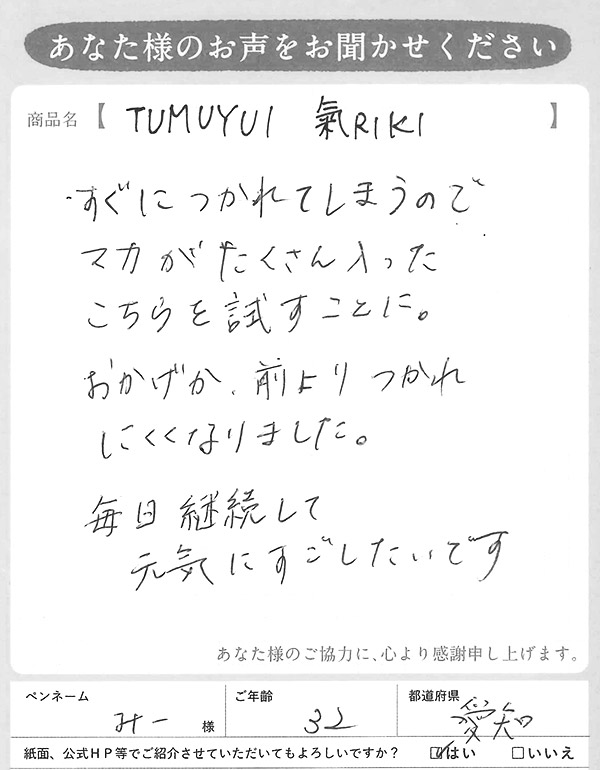 あなた様のお声をお聞かせください
商品名【 TUMUYUI 氣RIKI 】
すぐにつかれてしまうので
マカがたくさん入った
こちらを試すことに。
おかげか、前よりつかれ
にくくなりました。
毎日継続して
元気にすごしたいです
あなた様のご協力に、心より感謝申し上げます。
ペンネーム ご年齢 都道府県
みー 様 32 愛知
紙面、公式HP等でご紹介させていただいてもよろしいですか? ☑はい □いいえ